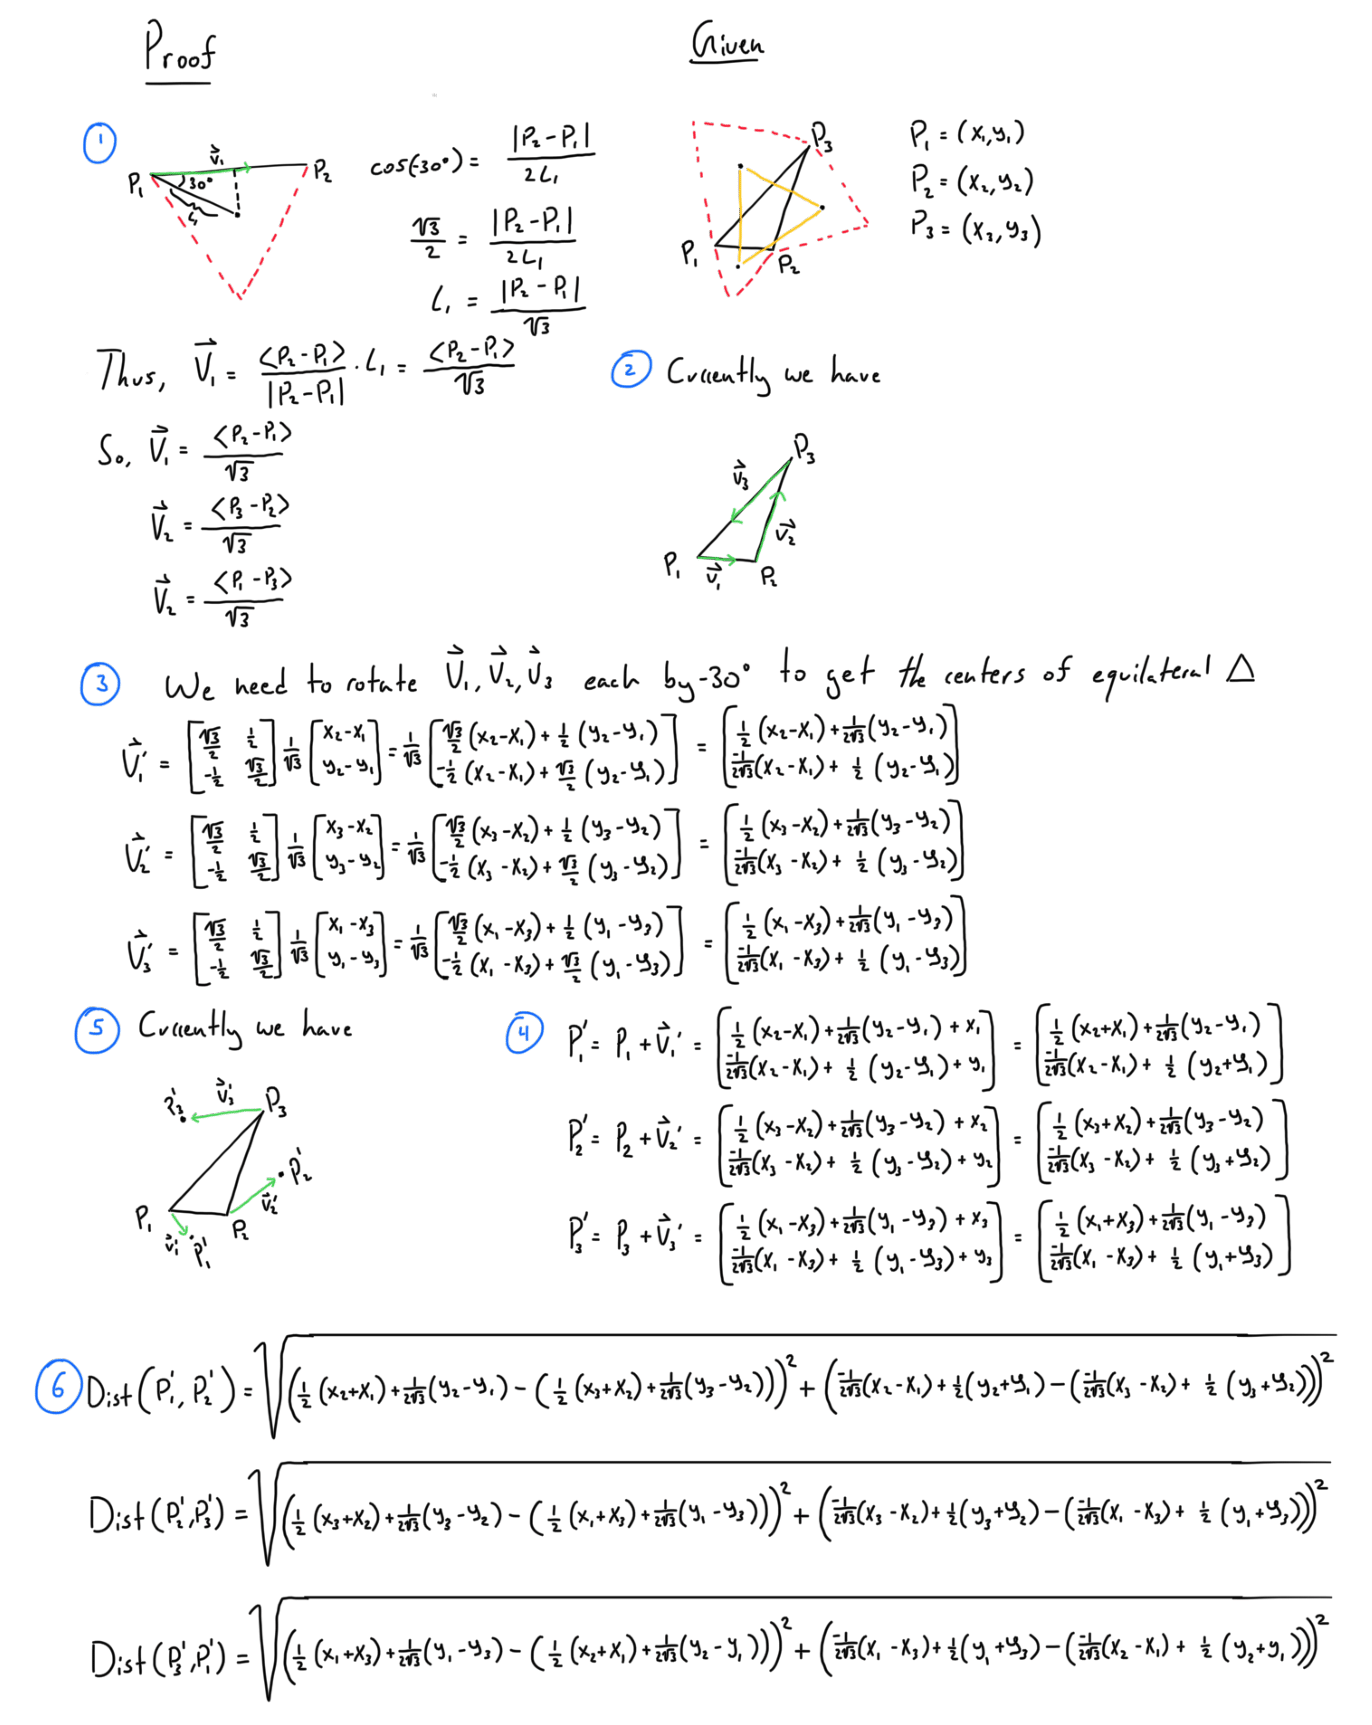 Proof
Given
①
P₁ V⃗₁ P₂
30°
L₁
cos(-30°) = |P₂-P₁| / 2L₁
√3/2 = |P₂-P₁| / 2L₁
L₁ = |P₂-P₁| / √3
P₃
P₁
P₂
P₁ = (x₁,y₁)
P₂ = (x₂,y₂)
P₃ = (x₃,y₃)
Thus, V⃗₁ = <P₂-P₁> / |P₂-P₁| · L₁ = <P₂-P₁> / √3
So, V⃗₁ = <P₂-P₁> / √3
V⃗₂ = <P₃-P₂> / √3
V⃗₂ = <P₁-P₃> / √3
② Currently we have
P₃
V⃗₃
V⃗₂
P₁
V⃗₁
P₂
③ We need to rotate V⃗₁, V⃗₂, V⃗₃ each by -30° to get the centers of equilateral △
V⃗₁' = [√3/2 1/2; -1/2 √3/2] 1/√3 [x₂-x₁; y₂-y₁] = 1/√3 [√3/2 (x₂-x₁) + 1/2 (y₂-y₁); -1/2 (x₂-x₁) + √3/2 (y₂-y₁)] = [1/2 (x₂-x₁) + 1/2√3 (y₂-y₁); -1/2√3 (x₂-x₁) + 1/2 (y₂-y₁)]
V⃗₂' = [√3/2 1/2; -1/2 √3/2] 1/√3 [x₃-x₂; y₃-y₂] = 1/√3 [√3/2 (x₃-x₂) + 1/2 (y₃-y₂); -1/2 (x₃-x₂) + √3/2 (y₃-y₂)] = [1/2 (x₃-x₂) + 1/2√3 (y₃-y₂); -1/2√3 (x₃-x₂) + 1/2 (y₃-y₂)]
V⃗₃' = [√3/2 1/2; -1/2 √3/2] 1/√3 [x₁-x₃; y₁-y₃] = 1/√3 [√3/2 (x₁-x₃) + 1/2 (y₁-y₃); -1/2 (x₁-x₃) + √3/2 (y₁-y₃)] = [1/2 (x₁-x₃) + 1/2√3 (y₁-y₃); -1/2√3 (x₁-x₃) + 1/2 (y₁-y₃)]
⑤ Currently we have
P₃' V⃗₃' P₃
P₂'
V⃗₂'
P₁
V⃗₁' P₁' P₂
④ P₁' = P₁ + V⃗₁' = [1/2 (x₂-x₁) + 1/2√3 (y₂-y₁) + x₁; -1/2√3 (x₂-x₁) + 1/2 (y₂-y₁) + y₁] = [1/2 (x₂+x₁) + 1/2√3 (y₂-y₁); -1/2√3 (x₂-x₁) + 1/2 (y₂+y₁)]
P₂' = P₂ + V⃗₂' = [1/2 (x₃-x₂) + 1/2√3 (y₃-y₂) + x₂; -1/2√3 (x₃-x₂) + 1/2 (y₃-y₂) + y₂] = [1/2 (x₃+x₂) + 1/2√3 (y₃-y₂); -1/2√3 (x₃-x₂) + 1/2 (y₃+y₂)]
P₃' = P₃ + V⃗₃' = [1/2 (x₁-x₃) + 1/2√3 (y₁-y₃) + x₃; -1/2√3 (x₁-x₃) + 1/2 (y₁-y₃) + y₃] = [1/2 (x₁+x₃) + 1/2√3 (y₁-y₃); -1/2√3 (x₁-x₃) + 1/2 (y₁+y₃)]
⑥ Dist(P₁', P₂') = √((1/2 (x₂+x₁) + 1/2√3 (y₂-y₁) - (1/2 (x₃+x₂) + 1/2√3 (y₃-y₂)))² + (-1/2√3 (x₂-x₁) + 1/2 (y₂+y₁) - (-1/2√3 (x₃-x₂) + 1/2 (y₃+y₂)))²
Dist(P₂', P₃') = √((1/2 (x₃+x₂) + 1/2√3 (y₃-y₂) - (1/2 (x₁+x₃) + 1/2√3 (y₁-y₃)))² + (-1/2√3 (x₃-x₂) + 1/2 (y₃+y₂) - (-1/2√3 (x₁-x₃) + 1/2 (y₁+y₃)))²
Dist(P₃', P₁') = √((1/2 (x₁+x₃) + 1/2√3 (y₁-y₃) - (1/2 (x₂+x₁) + 1/2√3 (y₂-y₁)))² + (-1/2√3 (x₁-x₃) + 1/2 (y₁+y₃) - (-1/2√3 (x₂-x₁) + 1/2 (y₂+y₁)))²